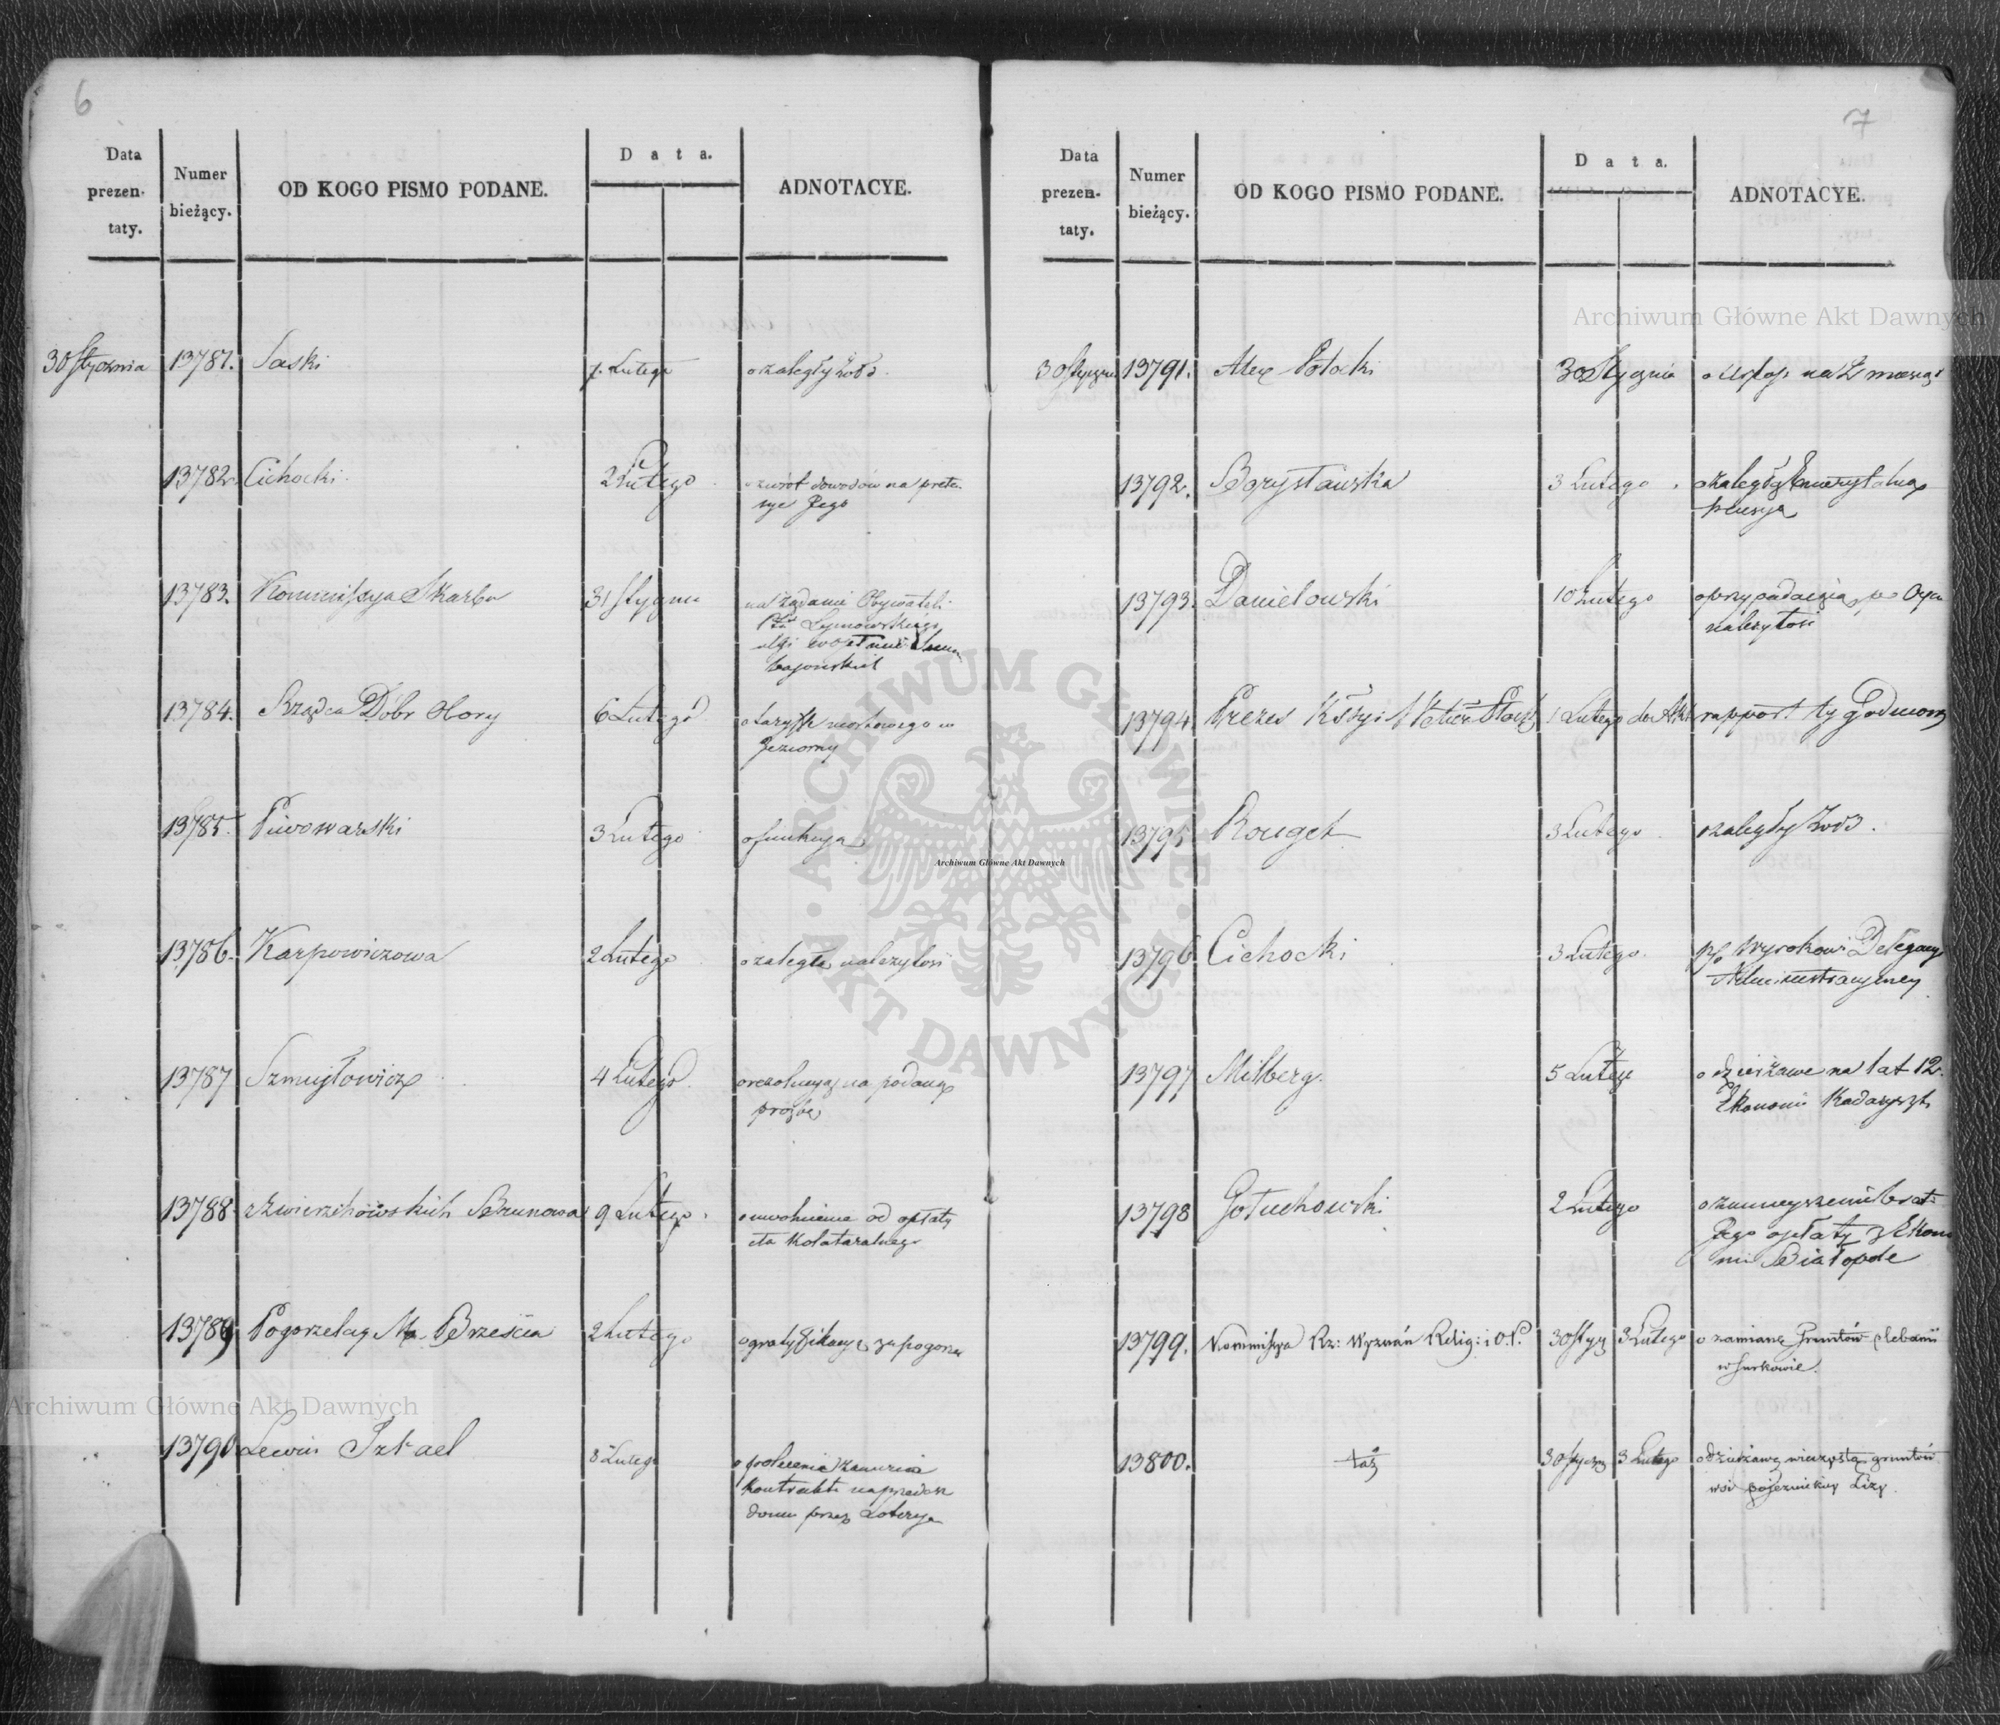 6
Data
prezen-
taty.
Numer
bieżący.
OD KOGO PISMO PODANE.
Data.
ADNOTACYE.
30 Stycznia 13781. Saski 7. Lutego o zaległy żołd.
13782. Cichocki. 2 Lutego o zwrot dowodów na preten-
sye Jego
13783. Kommissya Skarbu 31 Styczn na żądanie Obywateli
13784. Rządca Dóbr Olory 6 Lutego o taryffę mostowego w
Jeziorny
13785. Piwowarski 3 Lutego o funkcyą
13786. Karpowiczowa 2 Lutego o zaległą należytość
13787 Szmujłowicz 4 Lutego o rezolucyą na podaną
prośbę
13788. Zwierzchowskich Brunowa 9 Lutego. o uwolnienie od opłaty
cła Kolateralnego
13789 Pogorzelcy M. Brześcia 2 Lutego o gratyfikacye za pogorz
13790 Lewin Izrael 8 Lutego o polecenie zawarcia
kontraktu na przedaż
domu przez Loteryą
7
Data
prezen-
taty.
Numer
bieżący.
OD KOGO PISMO PODANE.
Data.
ADNOTACYE.
30 Styczn 13791. Alex Potocki 30 Stycznia o Urlop na 2 miesiąc
13792. Borysławska 3 Lutego. o zaległą Emerytalną
pensyą
13793. Danielowski 10 Lutego o przypadaiącą po Oycu
należytość
13794 Prezes 1 Lutego do Akt rapport tygodniowy
13795 Rouget 3 Lutego. o zaległy żołd.
13796 Cichocki 3 Lutego. Wyrokowi Delegacyi
Administracyiney
13797 Milberg. 5 Lutego o dzierżawe na lat 12.
Ekonomii Kadaryszk
13798 Gołuchowski 2 Lutego o zmnieyszenie
Jego opłaty z Ekono
mii Białopole
13799. Kommissya Rz: Wyznań Relig: i O.P. 30 Stycz 3 Lutego o zamianę Gruntów plebanii
w Surkowie.
13800. taż 30 Stycz 3 Lutego o dzierżawę wieczystą gruntów
wsi pojezuickiey Lizy.
Archiwum Główne Akt Dawnych
ARCHIWUM GŁÓWNE
· AKT DAWNYCH ·
Archiwum Główne Akt Dawnych
Archiwum Główne Akt Dawnych